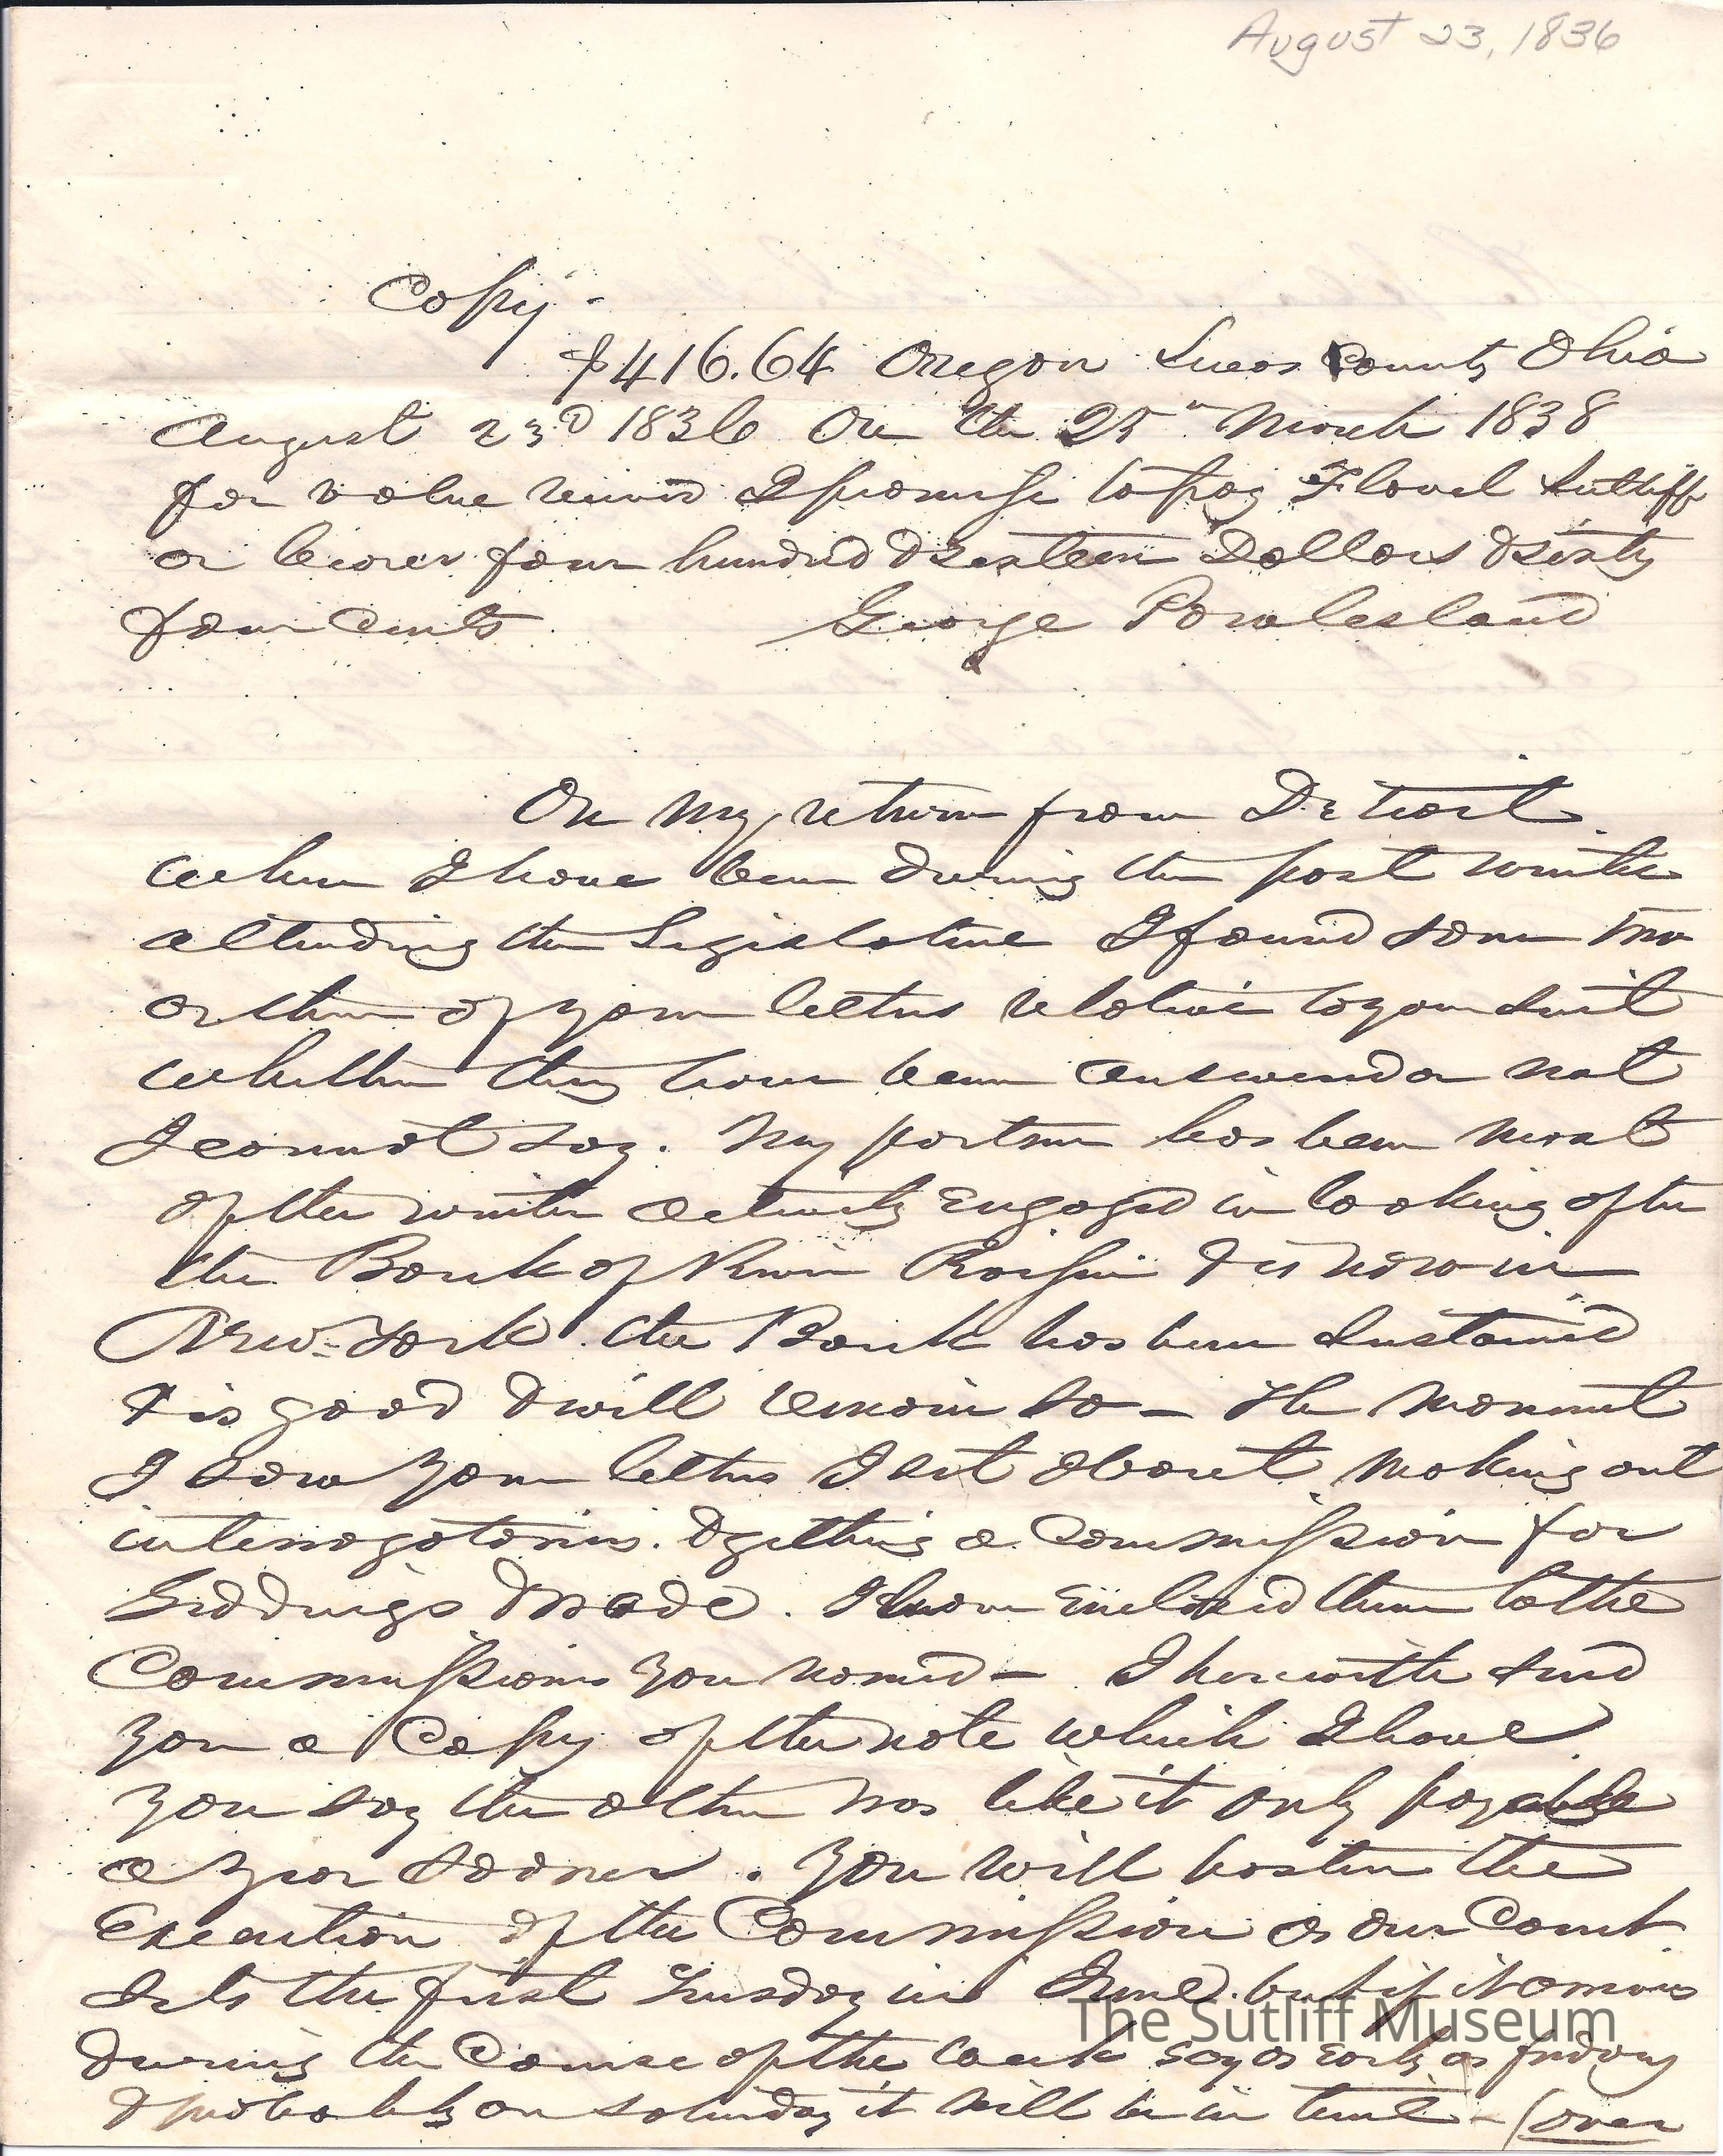 August 23, 1836
Copy -
$416.64 Oregon Lucas County Ohio
August 23d 1836 On the 25th March 1838
for value received I promise to pay Flavel Sutliff
or bearer four hundred & sixteen Dollars & sixty
four Cents George Powlesland
On my return from Detroit
where I have been during the past winter
attending the Legislature I found some two
or three of your letters relative to your suit
whether they have been answered or not
I cannot say. My partner has been most
of the winter actively engaged in looking after
the Bank of River Raisin & is now in
New-York. the Bank has been sustained
& is good & will remain so - The moment
I saw your letters I set about making out
interrogatories. & getting a Commission for
Giddings & Wade. I have enclosed them to the
Commissioners you named - I herewith send
you a Copy of the note which I have
you say the other was like it only payable
a year sooner. You will hasten the
Execution of the Commission as our Court
sits the first Tuesday in June. but if it comes
during the Course of the week say as early as friday
& probably on saturday it will be in time - (over
The Sutliff Museum